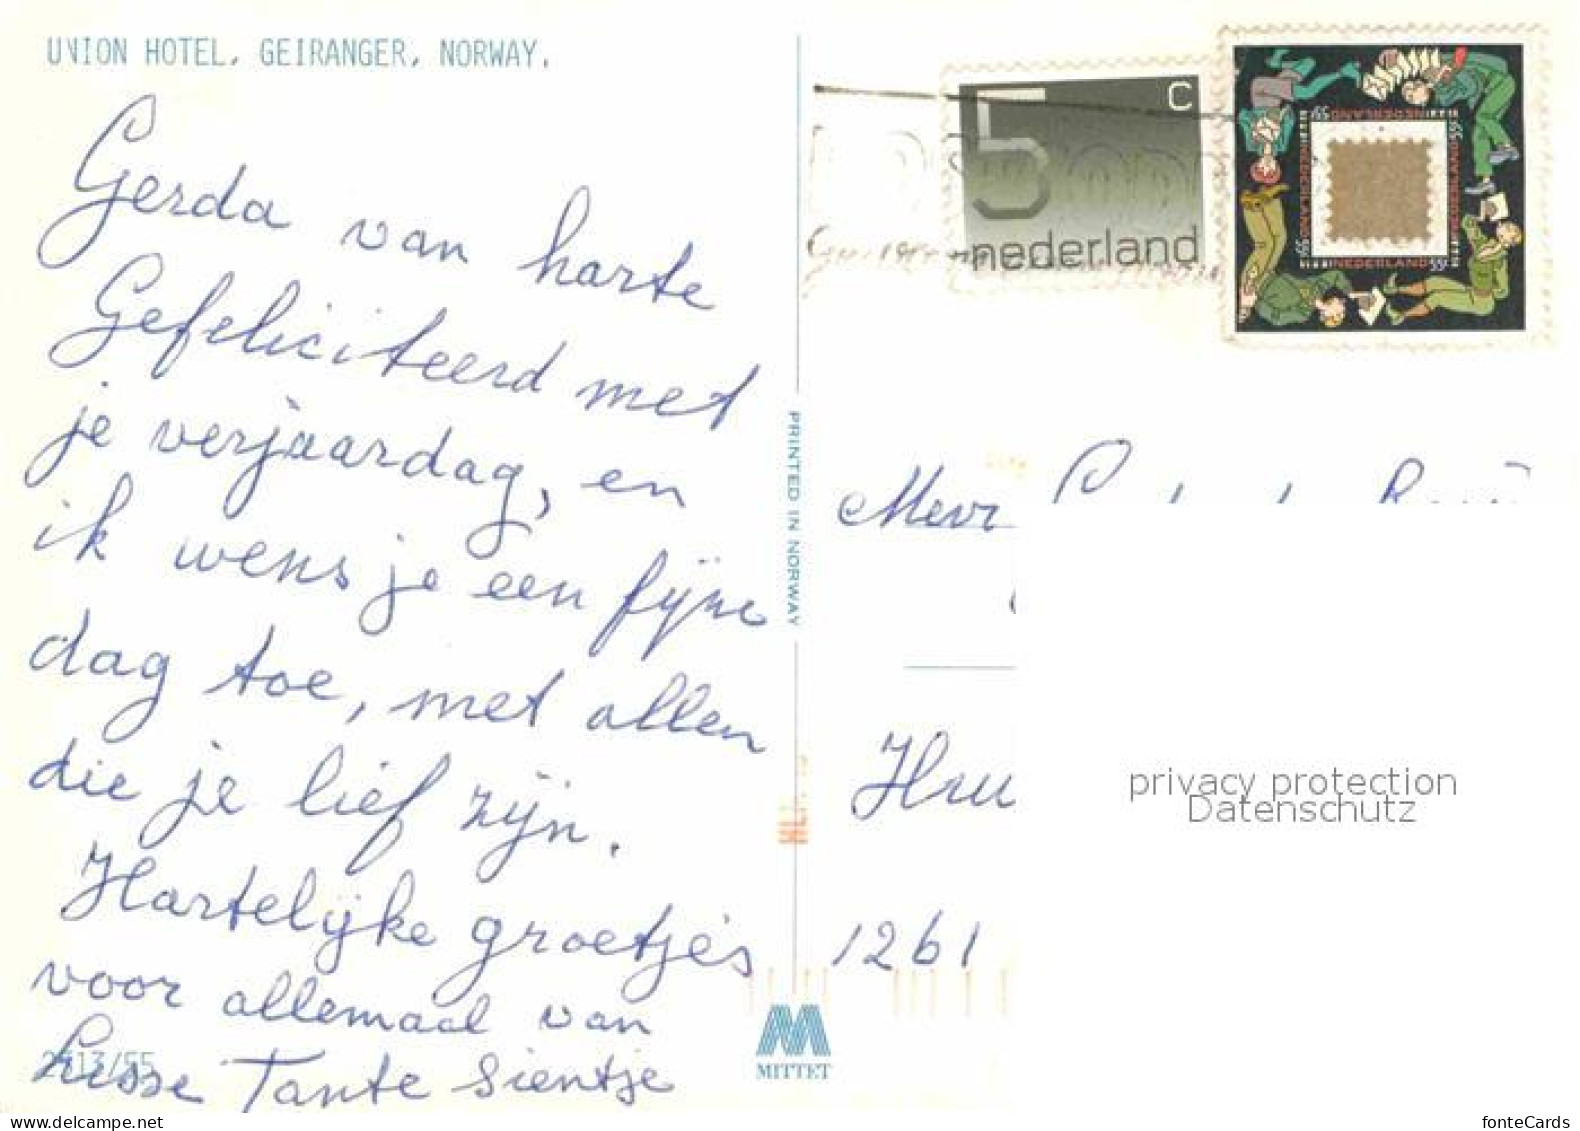 UNION HOTEL, GEIRANGER, NORWAY.
Gerda van harte
Gefeliciteerd met
je verjaardag, en
ik wens je een fijne
dag toe, met allen
die je lief zijn.
Hartelijke groetjes
voor allemaal van
Tante Sientje
2713/55
PRINTED IN NORWAY
MITTET
5 C
nederland
NEDERLAND 55
NEDERLAND 55
NEDERLAND 55
NEDERLAND 55
Mevr
1261
privacy protection
Datenschutz
www.delcampe.net
fonteCards